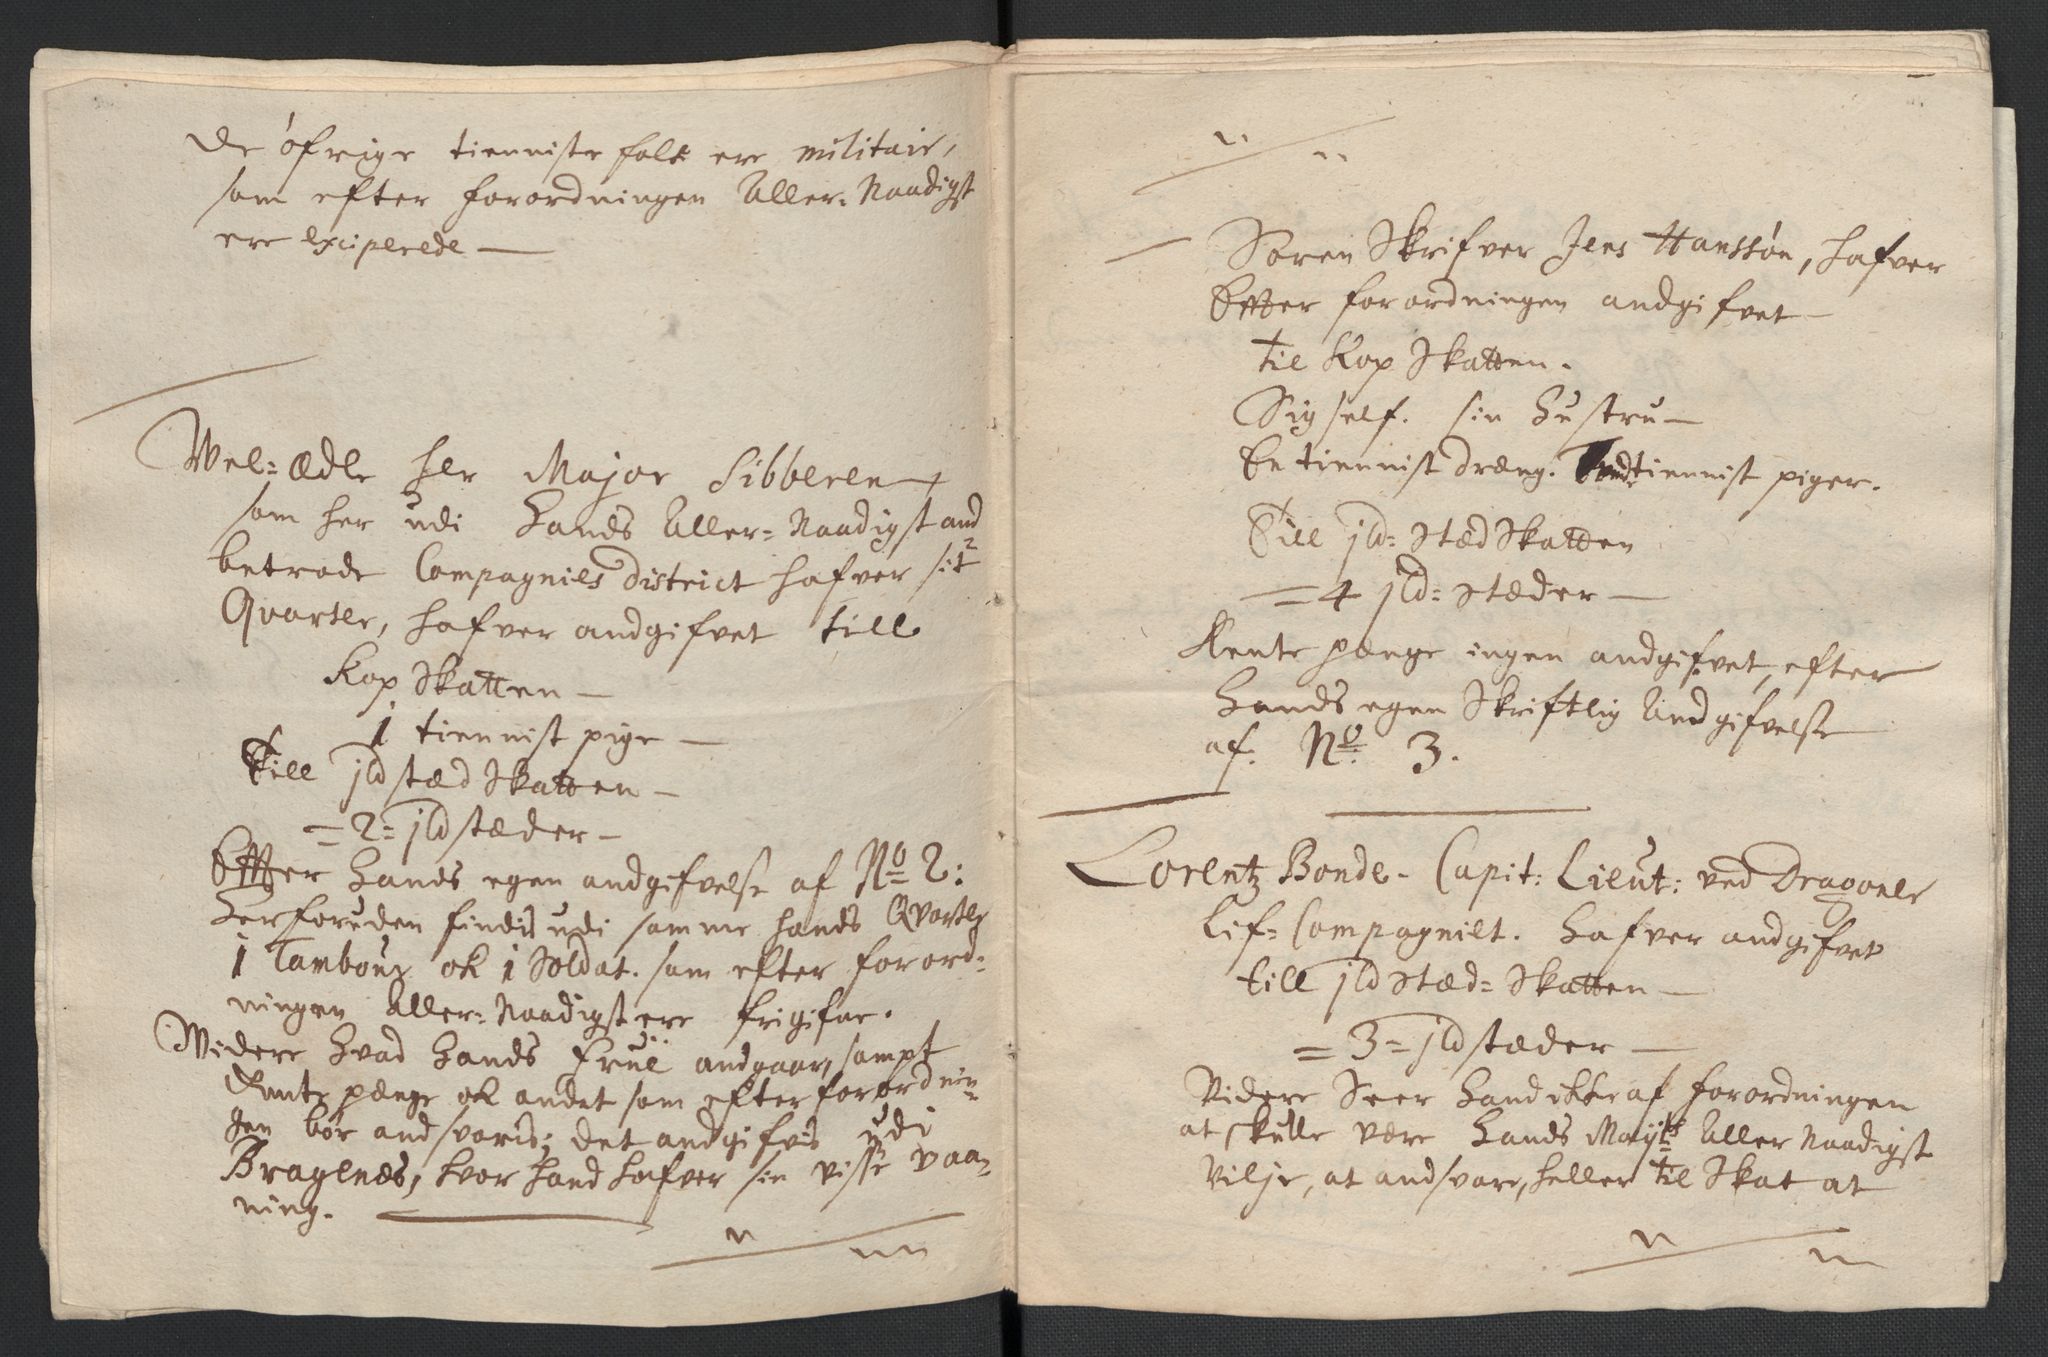 De öfrige tienniste folk ere militair,
som efter forordningen Aller-Naadigst
ere exciperede —
Wel-ædle her Major Sibberen
som her udi hands Aller-Naadigst and
betrode Compagnies district hafver sit
Qvarter, hafver andgifvet till
Kop Skatten —
1 tiennist pige —
Till jldstæd Skatten —
= 2 = jldstæder —
Efter hands egen andgifvelse af No 2:
Herforuden findis udi samme hands Qvarter
1 Tambour ok 1 Soldat. som efter forord-
ningen Aller-Naadigst ere frigifne.
Widere hvad hands Frue andgaar, sampt
Rente pænge ok andet som efter forordnin-
gen bör andsvaris; det andgifvis udi
Bragenæs, hvor hand hafver sin visse vaa-
ning.
Soren Skrifver Jens Hanssön, hafver
Efter forordningen andgifvet —
til Kop Skatten.
Sig self. sin Hustru —
En tiennist dræng. tiennist piger.
Till jld-Stæd Skatten
= 4 jld-Stæder —
Rente pænge ingen andgifvet, efter
hands egen Skriftlig Andgifvelse
af. No 3.
Lorentz Bonde - Capit: Lieut: ved Dragoner
Lif-Compagniet. hafver andgifvet
till jldstæd-Skatten —
= 3 = jldstæder —
Videre Seer hand ikke af forordningen
at skulle være hands Mayts Aller Naadigst
Vilje, at andsvare, heller til Skat at